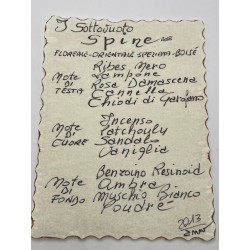 I Sottovuoto
Spine
FLOREALE-ORIENTALE SPEZIATA-BOISÉ
NOTE DI TESTA
Ribes Nero
Lampone
Rosa Damascena
Cannella
Chiodi di Garofano
NOTE DI CUORE
Incenso
Patchouly
Sandalo
Vaniglia
NOTE DI FONDO
Benzoino Resinoid
Ambra
Muschio Bianco
Poudré
2013